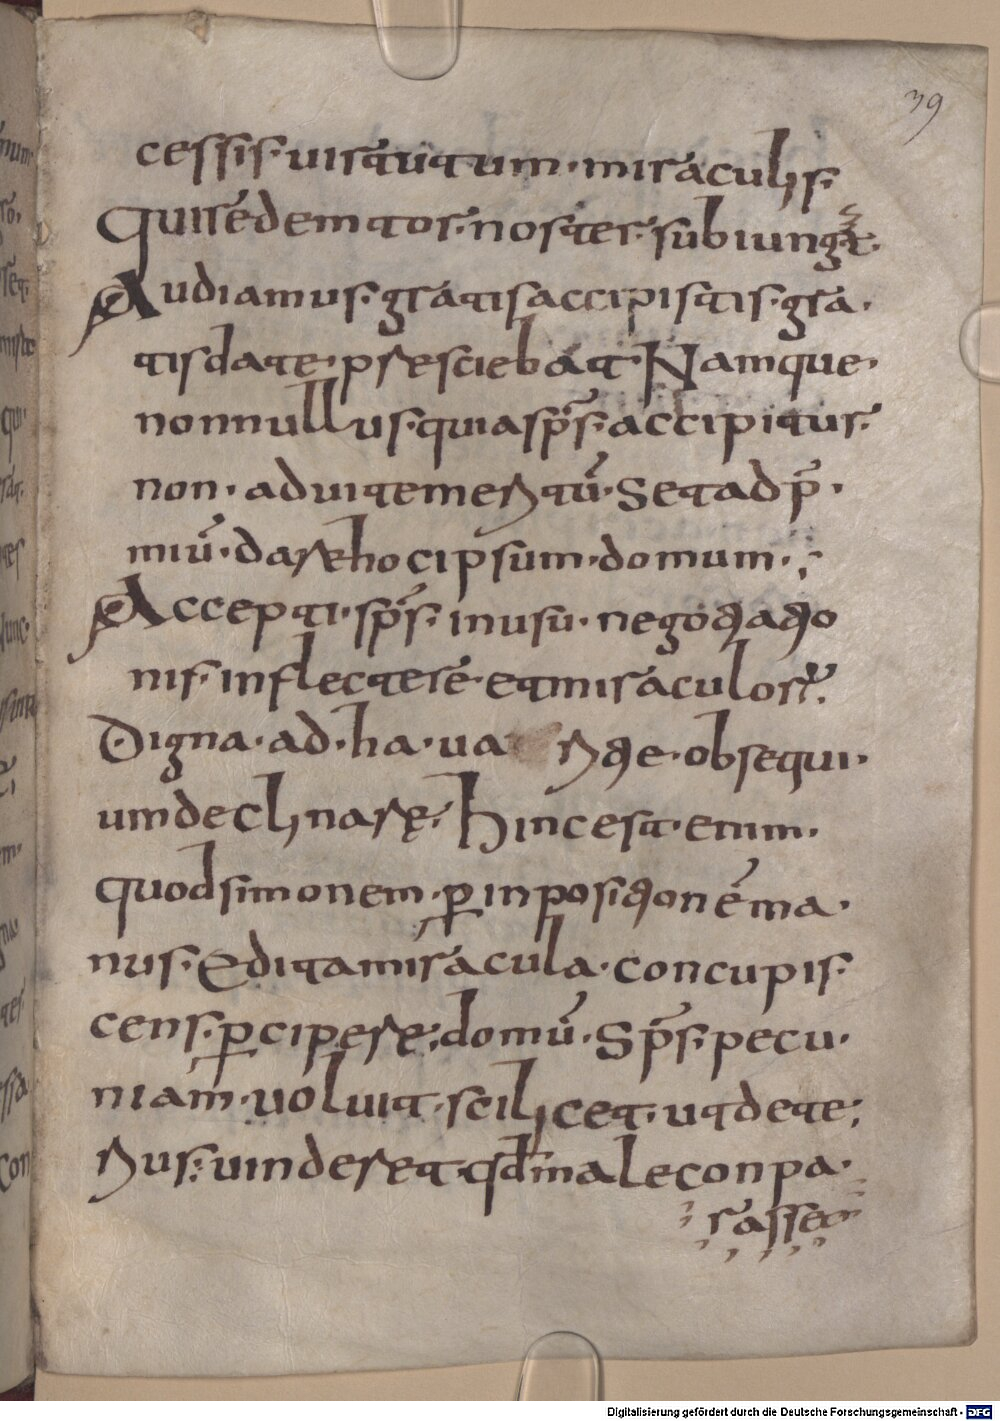 39
cessis·uirtutum·miraculis·
Quiredemtor·noster·subiunget·
Audiamus·gratisaccipistis·gra·
tisdate·presciebat·Namque·
nonnullus·quiasp̄s·accipitur·
non·aduitemeritū·Setadp̄·
miū·darehocipsum·domum·;
Accepti·sp̄s·inusu·negotiatio
nis·inflectere·etmiraculor̄·
Digna·ad·ha·ua ritie·obsequi·
umdeclinarę·Hincest·enim·
quodsimonem·ꝑinpositionēma·
nus·Editamiracula·concupis·
cens·ꝑcipere·;domū·Sp̄s·pecu·
niam·uoluit·scilicet·utdete·;
rius·uinderęt·qd̄maleconpa·
rasset
Digitalisierung gefördert durch die Deutsche Forschungsgemeinschaft - DFG